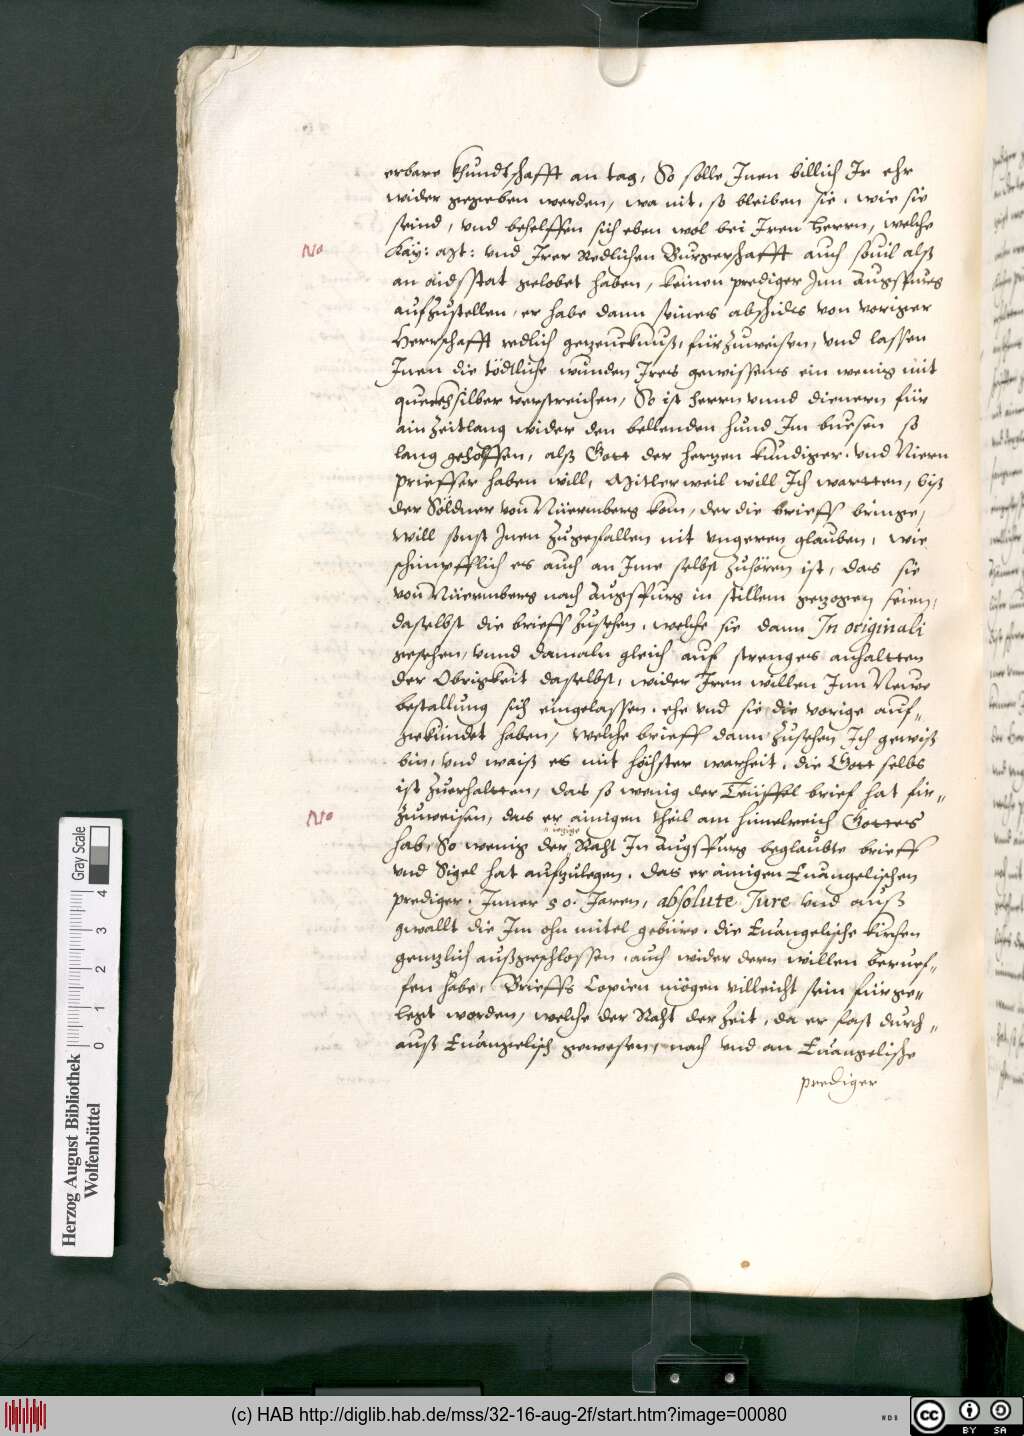 erbare khundtschafft an tag, So solle Inen billich Ir ehr
wider gegeben werden, wa nit, so bleiben sie, wie sie
seind, und behelffen sich eben wol bei Iren Herrn, welche
No
Kay: Mt: und Irer Redlichen Burgerschafft auch souil alß
an aidsstat gelobet haben, keinen prediger Inn Augspurg
aufzustellen, er habe dann seines abschids von voriger
Herrschafft redlich gezeucknuß, fürzuweisen, und lassen
Inen die tödtliche wunden Ires gewissens ein wenig mit
queckhsilber verstreichen, So ist herrn unnd dienern für
ain Zeitlang wider den bellenden hund Im buesen so
lang geholffen, alß Gott der hertzen kündiger, und Niern
prieffer haben will, Mitlerweil will Ich wartten, biß
der Söldner von Nüermberg kom, der die brieff bringe,
will sonst Inen zugefallen nit ungeren glauben, wie
schimpfflich es auch an Ime selbst zuhören ist, das sie
von Nüermberg nach Augspurg in stillem gezogen seien,
daselbst die brieff zusehen, welche sie dann In originali
gesehen, unnd damaln gleich auf strenges anhaltten
der Obrigkeit daselbst, wider Iren willen Inn Newe
bestallung sich eingelassen, ehe und sie die vorige auf-
gekündet haben, welche brieff dann zusehen Ich gewiß
bin, und waiß es mit höchster warheit, die Gott selbs
ist zuerhaltten, das so wenig der Teüffel brief hat für-
No
zuweisen, das er ainigen theil am himelreich Gottes
hab, So wenig der Raht In Augspurg beglaubte brieff
und Sigel hat aufzulegen, das er ainigen Euangelischen
prediger, Inner 50. Jaren, absolute Jure und auß
gwallt die Im ohn mitel gebüre, die Euangelische kirchen
gentzlich außgeschlossen, auch wider dern willen beruef-
fen habe, Brieffs Copien mögen villeicht sein fürge-
legt worden, welche der Raht der Zeit, da er fast durch-
auß Euangelisch gewesen, nach und an Euangelische
prediger
Herzog August Bibliothek
Wolfenbüttel
0 1 2 3 4
Gray Scale
(c) HAB http://diglib.hab.de/mss/32-16-aug-2f/start.htm?image=00080
WDB
cc BY SA